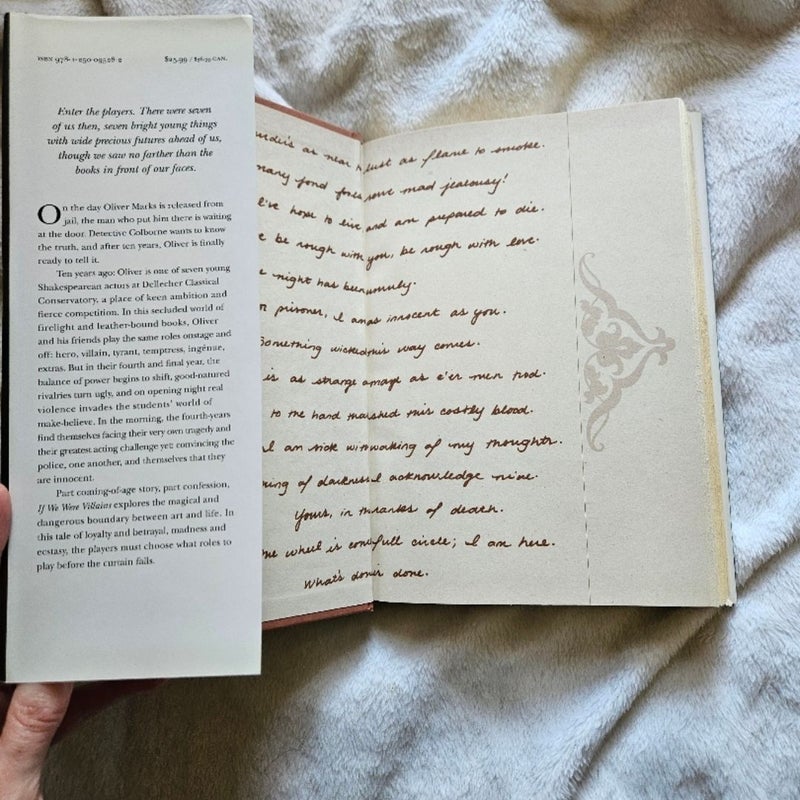 ISBN 978-1-250-09528-2 $25.99 / $36.99 CAN.
Enter the players. There were seven
of us then, seven bright young things
with wide precious futures ahead of us,
though we saw no farther than the
books in front of our faces.
On the day Oliver Marks is released from
jail, the man who put him there is waiting
at the door. Detective Colborne wants to know
the truth, and after ten years, Oliver is finally
ready to tell it.
Ten years ago: Oliver is one of seven young
Shakespearean actors at Dellecher Classical
Conservatory, a place of keen ambition and
fierce competition. In this secluded world of
firelight and leather-bound books, Oliver
and his friends play the same roles onstage and
off: hero, villain, tyrant, temptress, ingénue,
extras. But in their fourth and final year, the
balance of power begins to shift, good-natured
rivalries turn ugly, and on opening night real
violence invades the students' world of
make-believe. In the morning, the fourth-years
find themselves facing their very own tragedy and
their greatest acting challenge yet: convincing the
police, one another, and themselves that they
are innocent.
Part coming-of-age story, part confession,
If We Were Villains explores the magical and
dangerous boundary between art and life. In
this tale of loyalty and betrayal, madness and
ecstasy, the players must choose what roles to
play before the curtain falls.
as near lust as flame to smoke.
many fond fools mad jealousy!
I've hope to live and am prepared to die.
be rough with you, be rough with love.
night has been unruly.
prisoner, I am as innocent as you.
Something wicked this way comes.
is as strange a maze as e'er men trod.
to the hand that shed this costly blood.
I am sick with waking of my thoughts.
thing of darkness I acknowledge mine.
Yours, in thanks of death.
The wheel is come full circle; I am here.
What's done is done.